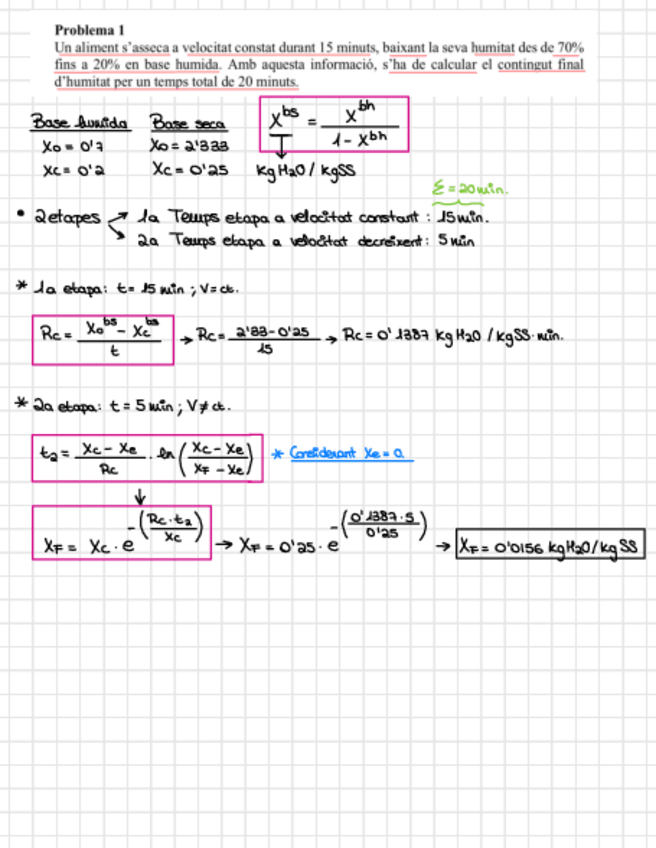 Problema 1
Un aliment s'asseca a velocitat constat durant 15 minuts, baixant la seva humitat des de 70%
fins a 20% en base humida. Amb aquesta informació, s'ha de calcular el contingut final
d'humitat per un temps total de 20 minuts.
Base humida Base seca X^bs = X^bh / 1 - X^bh
X0 = 0'7 X0 = 2'333
Xc = 0'2 Xc = 0'25 kg H2O / kgSS
Σ = 20 min.
• 2 etapes → 1a Temps etapa a velocitat constant : 15 min.
→ 2a Temps etapa a velocitat decreixent : 5 min
* 1a etapa: t = 15 min ; V = ct.
Rc = X0^bs - Xc^bs / t → Rc = 2'33 - 0'25 / 15 → Rc = 0'1387 kg H2O / kgSS · min.
* 2a etapa: t = 5 min ; V ≠ ct.
t2 = Xc - Xe / Rc · ln (Xc - Xe / XF - Xe) * Considerant Xe = 0.
↓
XF = Xc · e^-(Rc · t2 / Xc) → XF = 0'25 · e^-(0'1387 · 5 / 0'25) → XF = 0'0156 kg H2O / kg SS